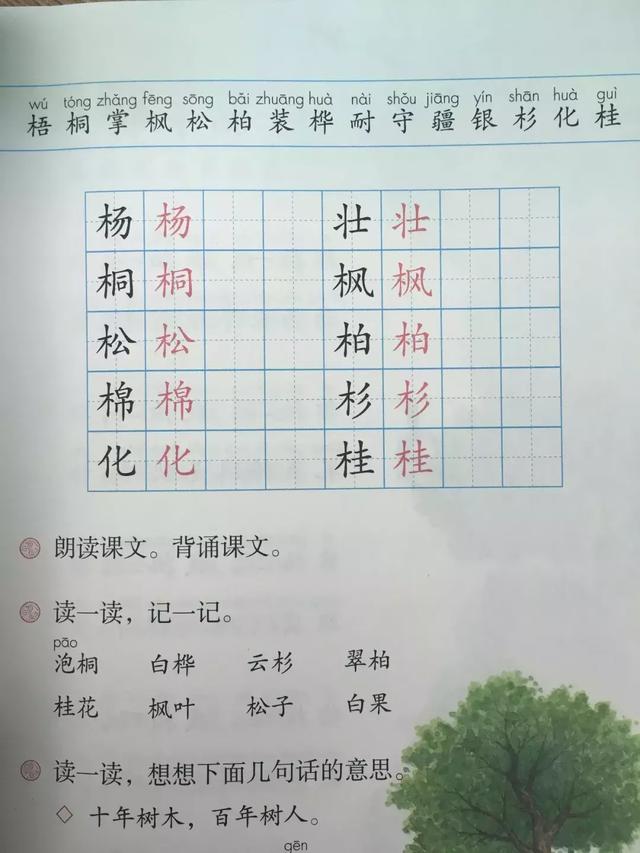 wú tóng zhǎng fēng sōng bǎi zhuāng huà nài shǒu jiāng yín shān huà guì
梧 桐 掌 枫 松 柏 装 桦 耐 守 疆 银 杉 化 桂
杨 杨 壮 壮
桐 桐 枫 枫
松 松 柏 柏
棉 棉 杉 杉
化 化 桂 桂
朗读课文。背诵课文。
读一读，记一记。
pāo
泡桐 白桦 云杉 翠柏
桂花 枫叶 松子 白果
读一读，想想下面几句话的意思。
◇ 十年树木，百年树人。
gēn